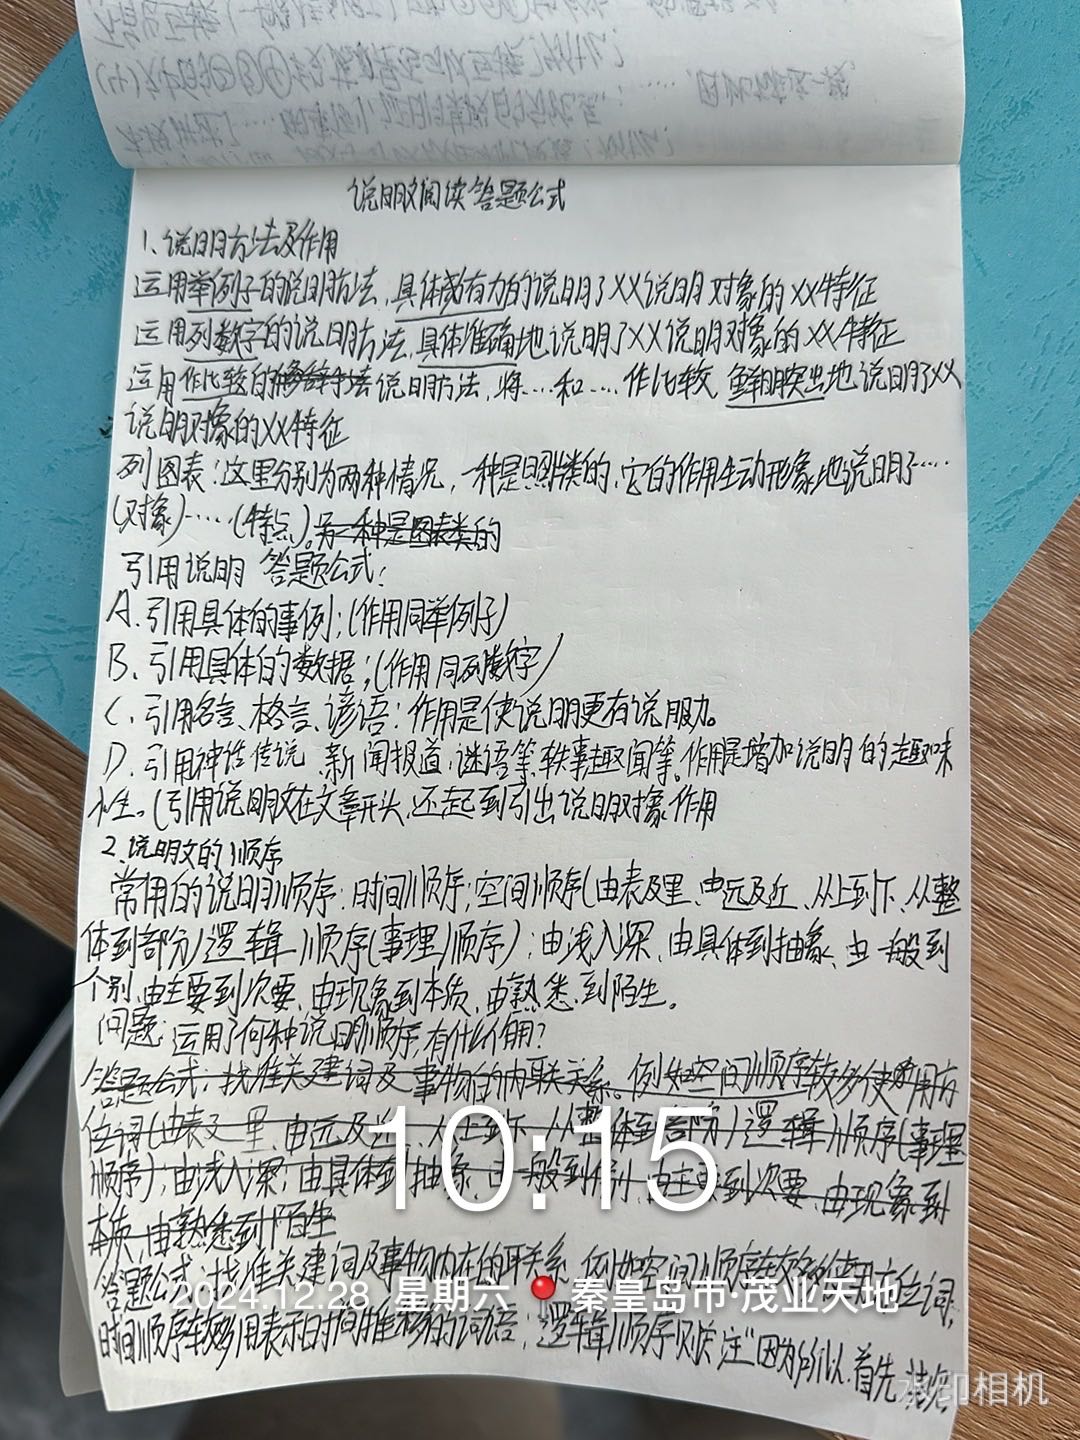 说明文阅读答题公式
1、说明方法及作用
运用举例子的说明方法，具体或有力的说明了XX说明对象的XX特征
运用列数字的说明方法，具体准确地说明了XX说明对象的XX特征
运用作比较的说明方法，将……和……作比较 鲜明突出地说明了XX
说明对象的XX特征
列图表：这里分别为两种情况，一种是照片类的，它的作用生动形象地说明了……
(对象)……(特点)。另一种是图表类的
引用说明 答题公式：
A.引用具体的事例；(作用同举例子)
B、引用具体的数据；(作用同列数字)
C、引用名言、格言、谚语：作用是使说明更有说服力。
D、引用神话传说、新闻报道、谜语等、轶事趣闻等。作用是增加说明的趣味
性。(引用说明文在文章开头，还起到引出说明对象作用
2、说明文的顺序
常用的说明顺序：时间顺序；空间顺序(由表及里、由远及近、从上到下、从整
体到部分)逻辑顺序(事理顺序)；由浅入深、由具体到抽象、由一般到
个别、由主要到次要、由现象到本质、由熟悉到陌生。
问题：运用了何种说明顺序，有什么作用？
答题公式：找准关建词及事物的内联关系。例如空间顺序较多使用方
位词(由表及里、由远及近、从上到下、从整体到部分)逻辑顺序(事理
顺序)；由浅入深；由具体到抽象、由一般到个别、由主要到次要、由现象到
本质、由熟悉到陌生
答题公式：找准关建词及事物内在的联关系，例如空间顺序较多使用方位词，
时间顺序较多用表示时间推移的词语；逻辑顺序则关注"因为所以、首先、其次、
10:15
2024.12.28 星期六 秦皇岛市·茂业天地
水印相机